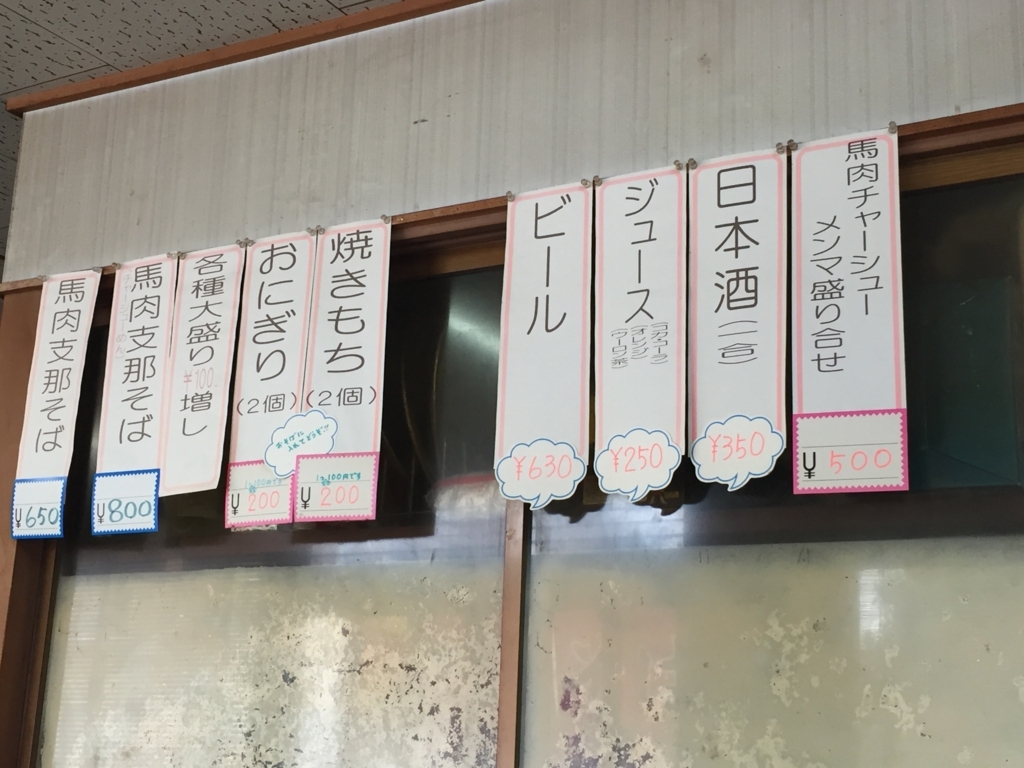 馬肉チャーシュー
メンマ盛り合せ
¥500
日本酒(一合)
¥350
ジュース
(コカ・コーラ)
(オレンジ)
(ウーロン茶)
¥250
ビール
¥630
焼きもち
(2個)
1ヶ100円です
¥200
おにぎり
(2個)
おそばに
入れてどうぞ!!
¥200
各種大盛り
¥100.
増し
馬肉支那そば
¥800
馬肉支那そば
¥650